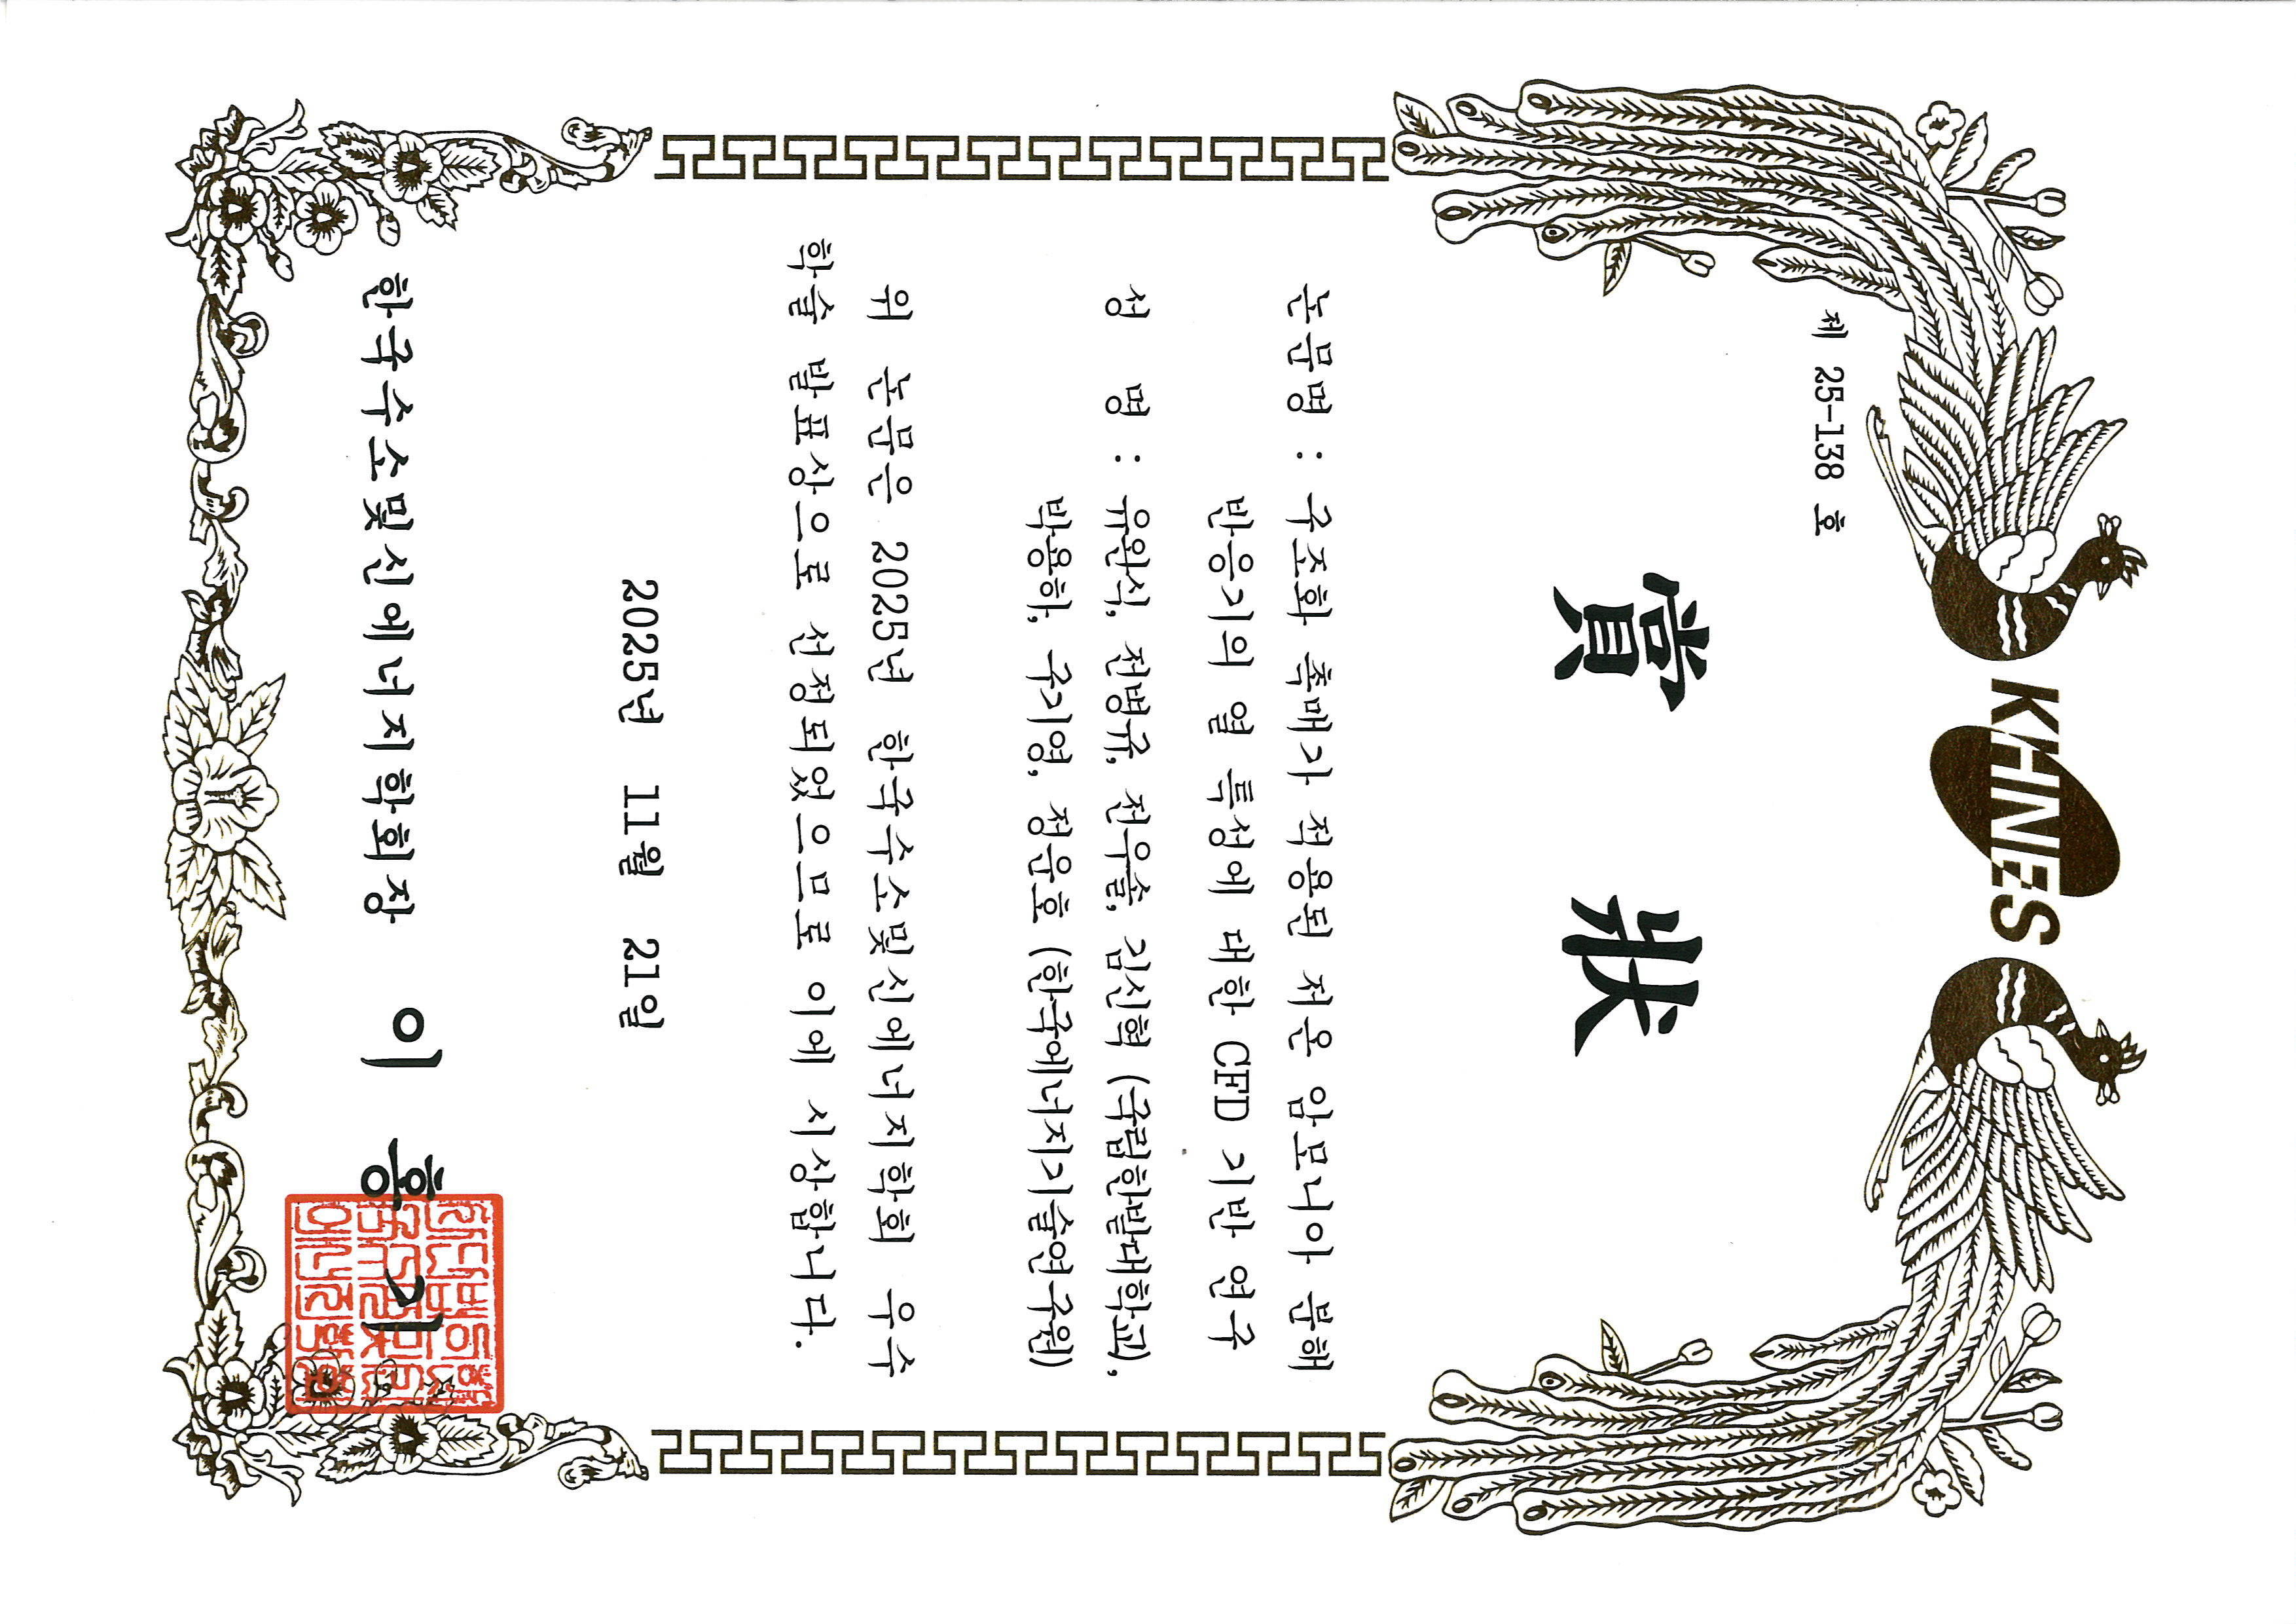 KHNES
제 25-138 호
賞 狀
논문명 : 구조화 촉매가 적용된 저온 암모니아 분해
반응기의 열 특성에 대한 CFD 기반 연구
성 명 : 유완식, 전병규, 전우솔, 김신혁 (국립한밭대학교),
박용하, 구기영, 정운호 (한국에너지기술연구원)
위 논문은 2025년 한국수소및신에너지학회 우수
학술 발표상으로 선정되었으므로 이에 시상합니다.
2025년 11월 21일
한국수소및신에너지학회장 이 홍 기